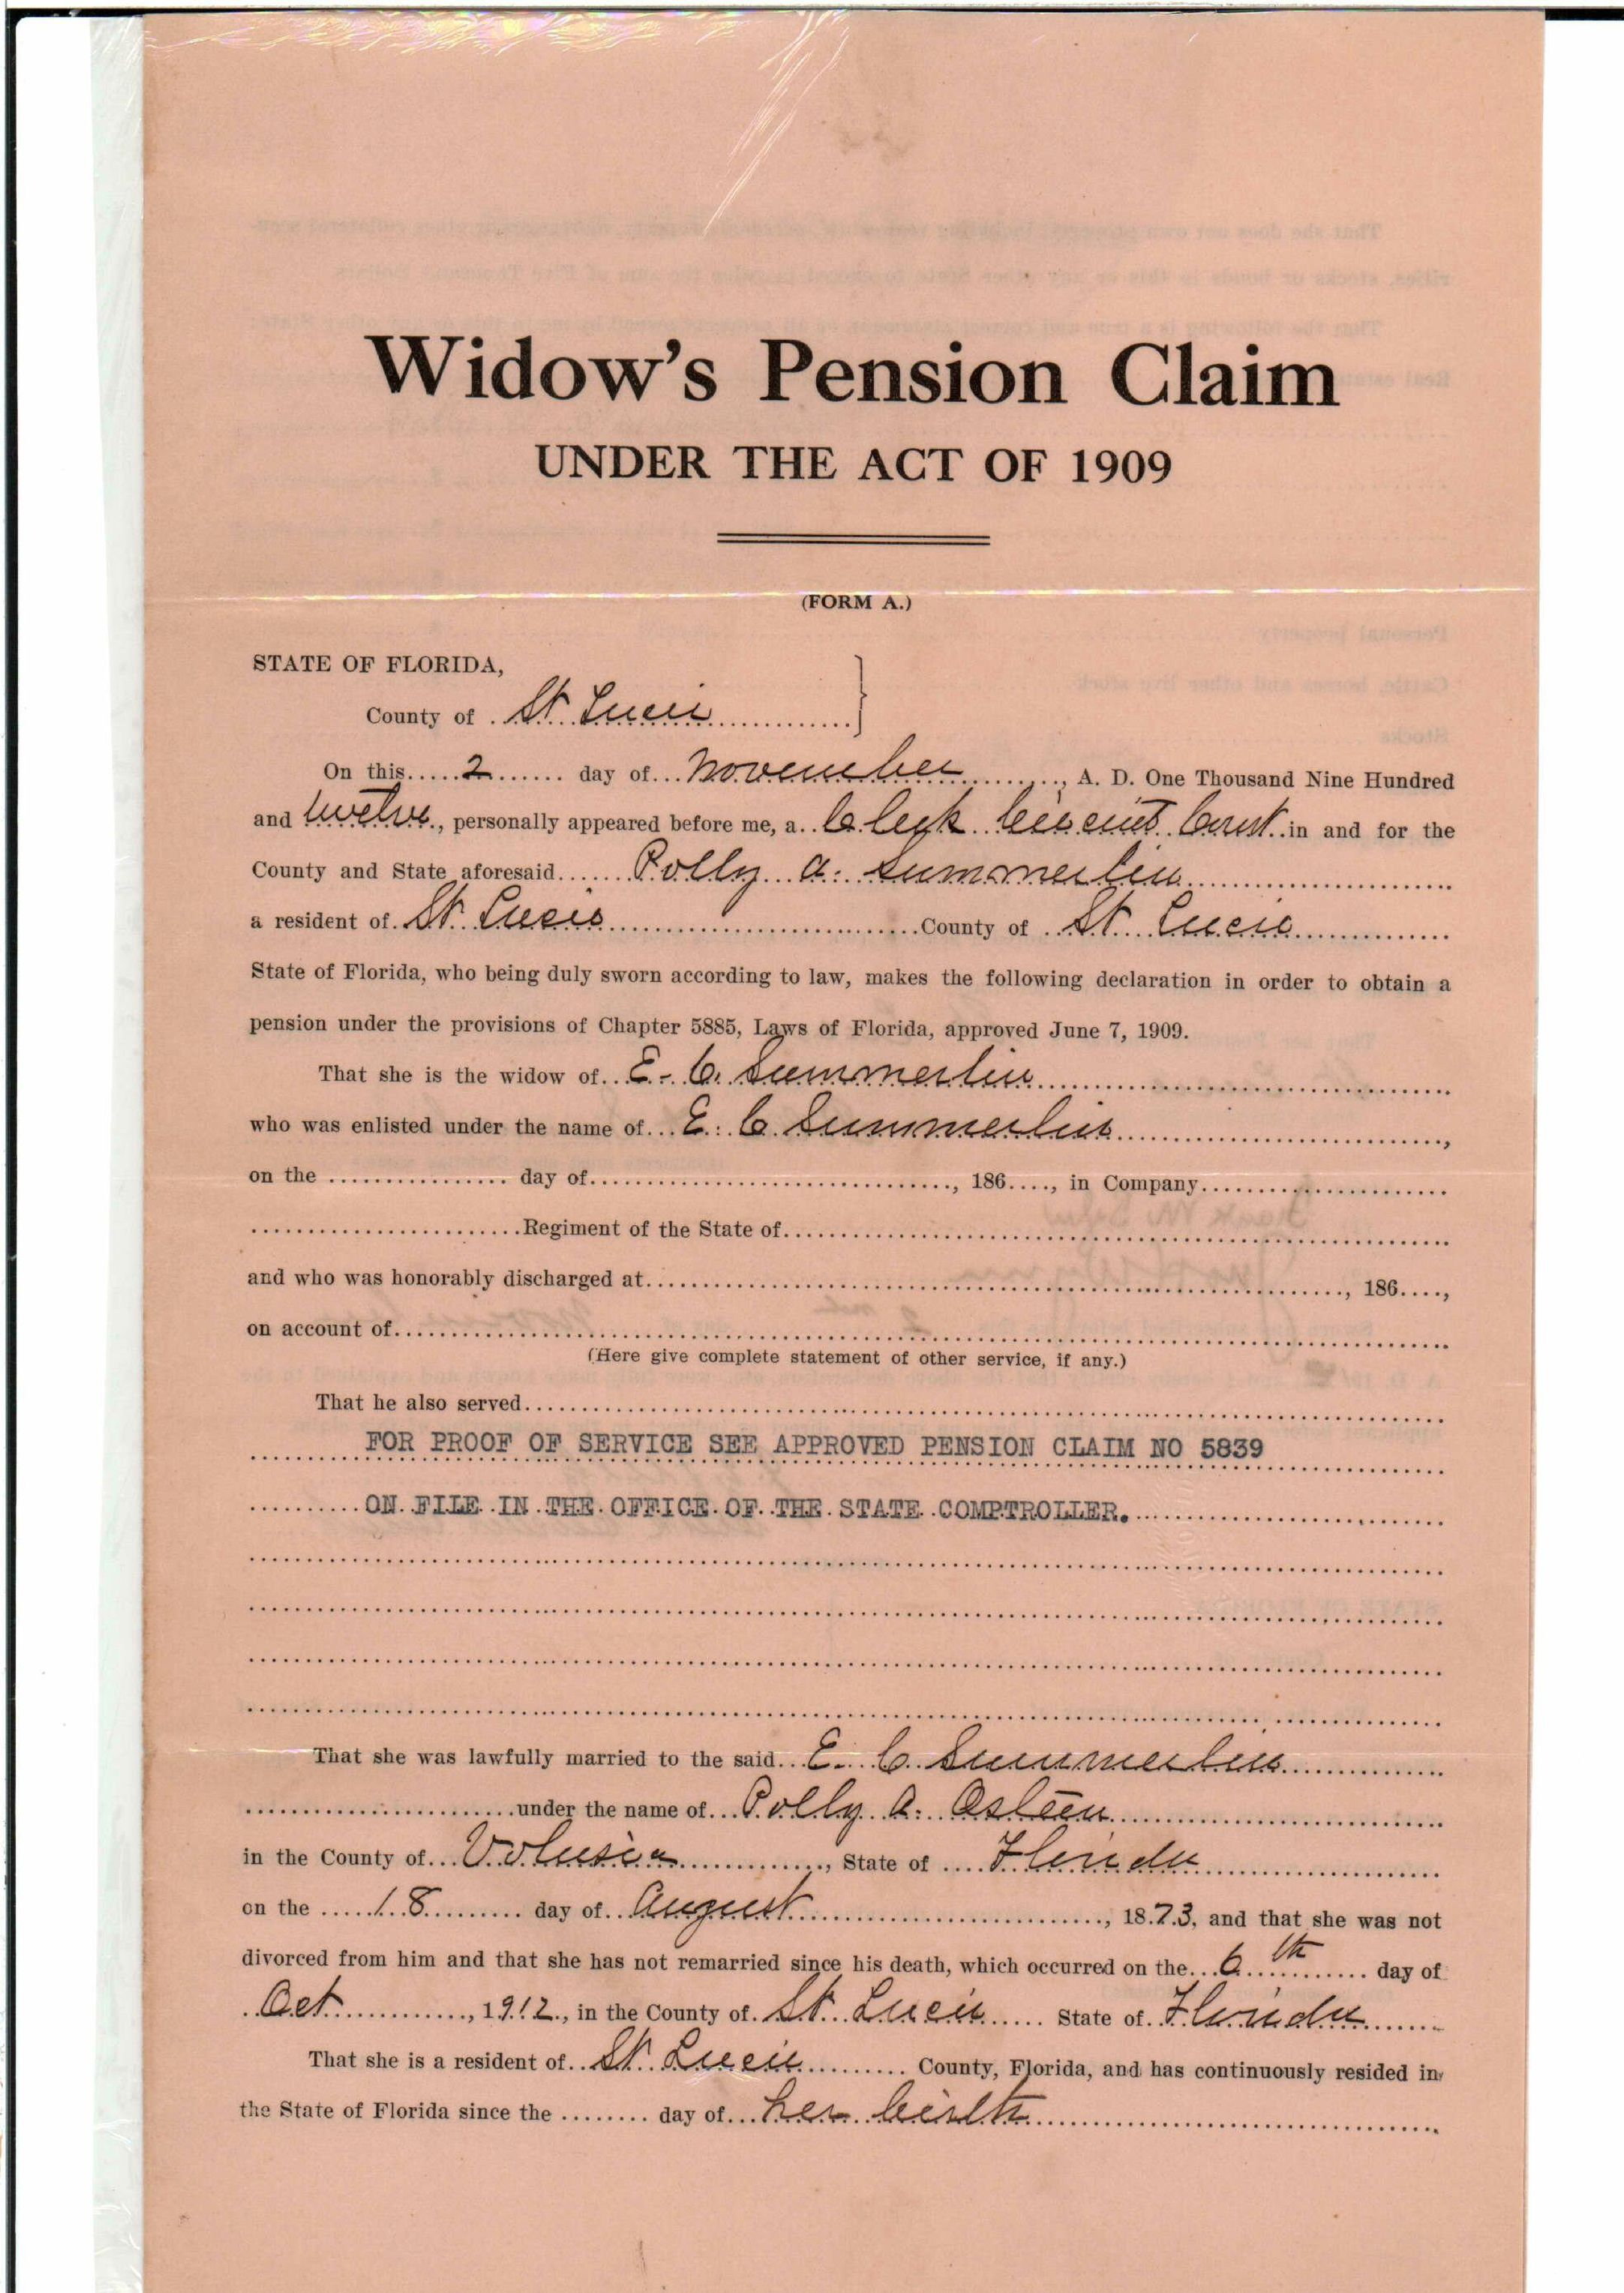 Widow's Pension Claim
UNDER THE ACT OF 1909
(FORM A.)
STATE OF FLORIDA,
County of St. Lucie
On this 2 day of November, A. D. One Thousand Nine Hundred
and twelve, personally appeared before me, a Clerk Circuit Court in and for the
County and State aforesaid Polly A. Summerlin
a resident of St. Lucie County of St. Lucie
State of Florida, who being duly sworn according to law, makes the following declaration in order to obtain a
pension under the provisions of Chapter 5885, Laws of Florida, approved June 7, 1909.
That she is the widow of E. C. Summerlin
who was enlisted under the name of E. C. Summerlin,
on the day of, 186, in Company
Regiment of the State of
and who was honorably discharged at, 186,
on account of
(Here give complete statement of other service, if any.)
That he also served
FOR PROOF OF SERVICE SEE APPROVED PENSION CLAIM NO 5839
ON FILE IN THE OFFICE OF THE STATE COMPTROLLER.
That she was lawfully married to the said E. C Summerlin
under the name of Polly A. Osteen
in the County of Volusia, State of Florida
on the 18 day of August, 1873, and that she was not
divorced from him and that she has not remarried since his death, which occurred on the 6th day of
Oct, 1912, in the County of St. Lucie State of Florida
That she is a resident of St. Lucie County, Florida, and has continuously resided in
the State of Florida since the day of her birth